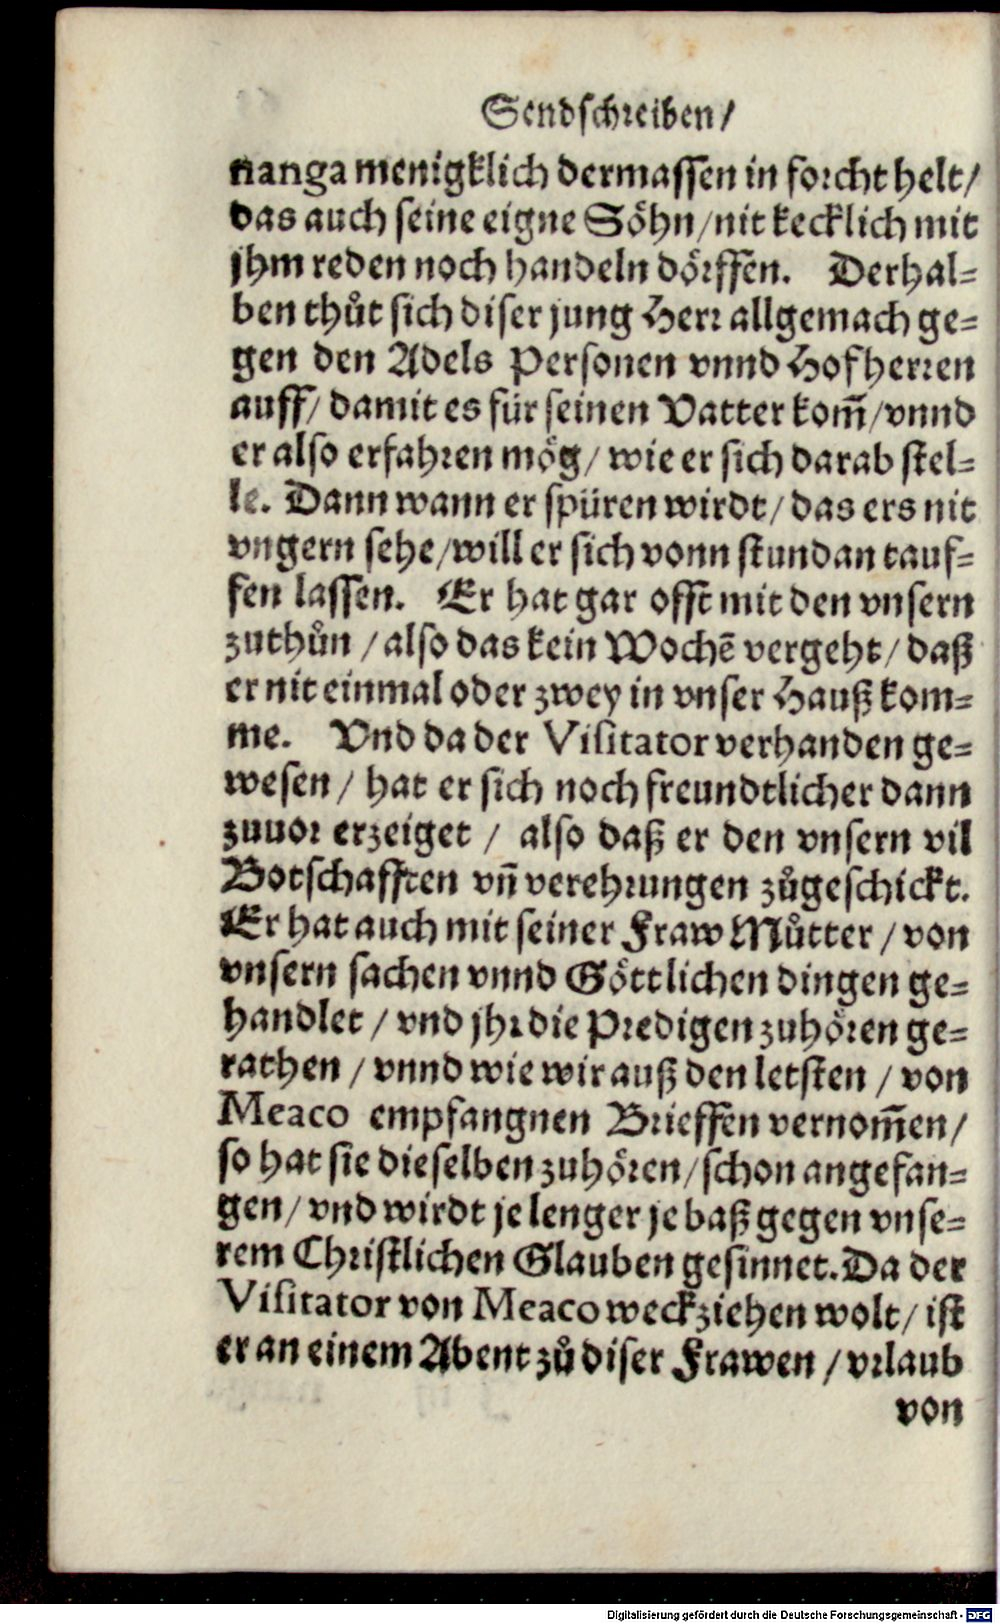 Sendschreiben/
nanga menigklich dermassen in forcht helt/
das auch seine eigne Söhn/nit kecklich mit
jhm reden noch handeln dörffen. Derhal=
ben thůt sich diser jung Herr allgemach ge=
gen den Adels Personen vnnd Hofherren
auff/ damit es für seinen Vatter kom̃/vnnd
er also erfahren mög/ wie er sich darab stel=
le. Dann wann er spüren wirdt/ das ers nit
vngern sehe/will er sich vonn stundan tauf=
fen lassen. Er hat gar offt mit den vnsern
zuthůn /also das kein Wochẽ vergeht/ daß
er nit einmal oder zwey in vnser Hauß kom=
me. Vnd da der Visitator verhanden ge=
wesen / hat er sich noch freundtlicher dann
zuuor erzeiget / also daß er den vnsern vil
Botschafften vñ verehrungen zůgeschickt.
Er hat auch mit seiner Fraw Můtter / von
vnsern sachen vnnd Göttlichen dingen ge=
handlet / vnd jhr die Predigen zuhören ge=
rathen / vnnd wie wir auß den letsten / von
Meaco empfangnen Brieffen vernom̃en/
so hat sie dieselben zuhören/schon angefan=
gen/ vnd wirdt je lenger je baß gegen vnse=
rem Christlichen Glauben gesinnet. Da der
Visitator von Meaco weckziehen wolt/ ist
er an einem Abent zů diser Frawen / vrlaub
von
Digitalisierung gefördert durch die Deutsche Forschungsgemeinschaft - DFG